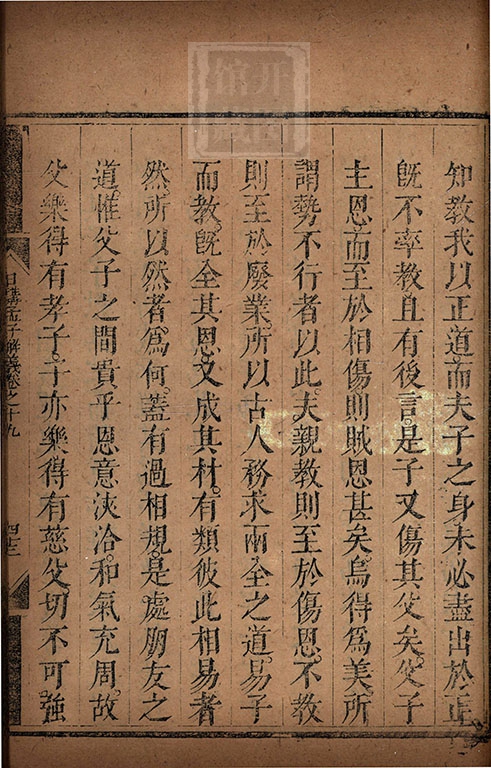 知教我以正道而夫子之身未必盡出於正
既不率教且有後言是子又傷其父矣父子
主恩而至於相傷則賊恩甚矣烏得爲美所
謂勢不行者以此夫親教則至於傷恩不教
則至於廢業所以古人務求兩全之道易子
而教既全其恩又成其材有類彼此相易者
然所以然者爲何蓋有過相規是處朋友之
道惟父子之間貴乎恩意浹洽和氣充周故
父樂得有孝子子亦樂得有慈父切不可強
日講孟子解義卷之十九
四十三